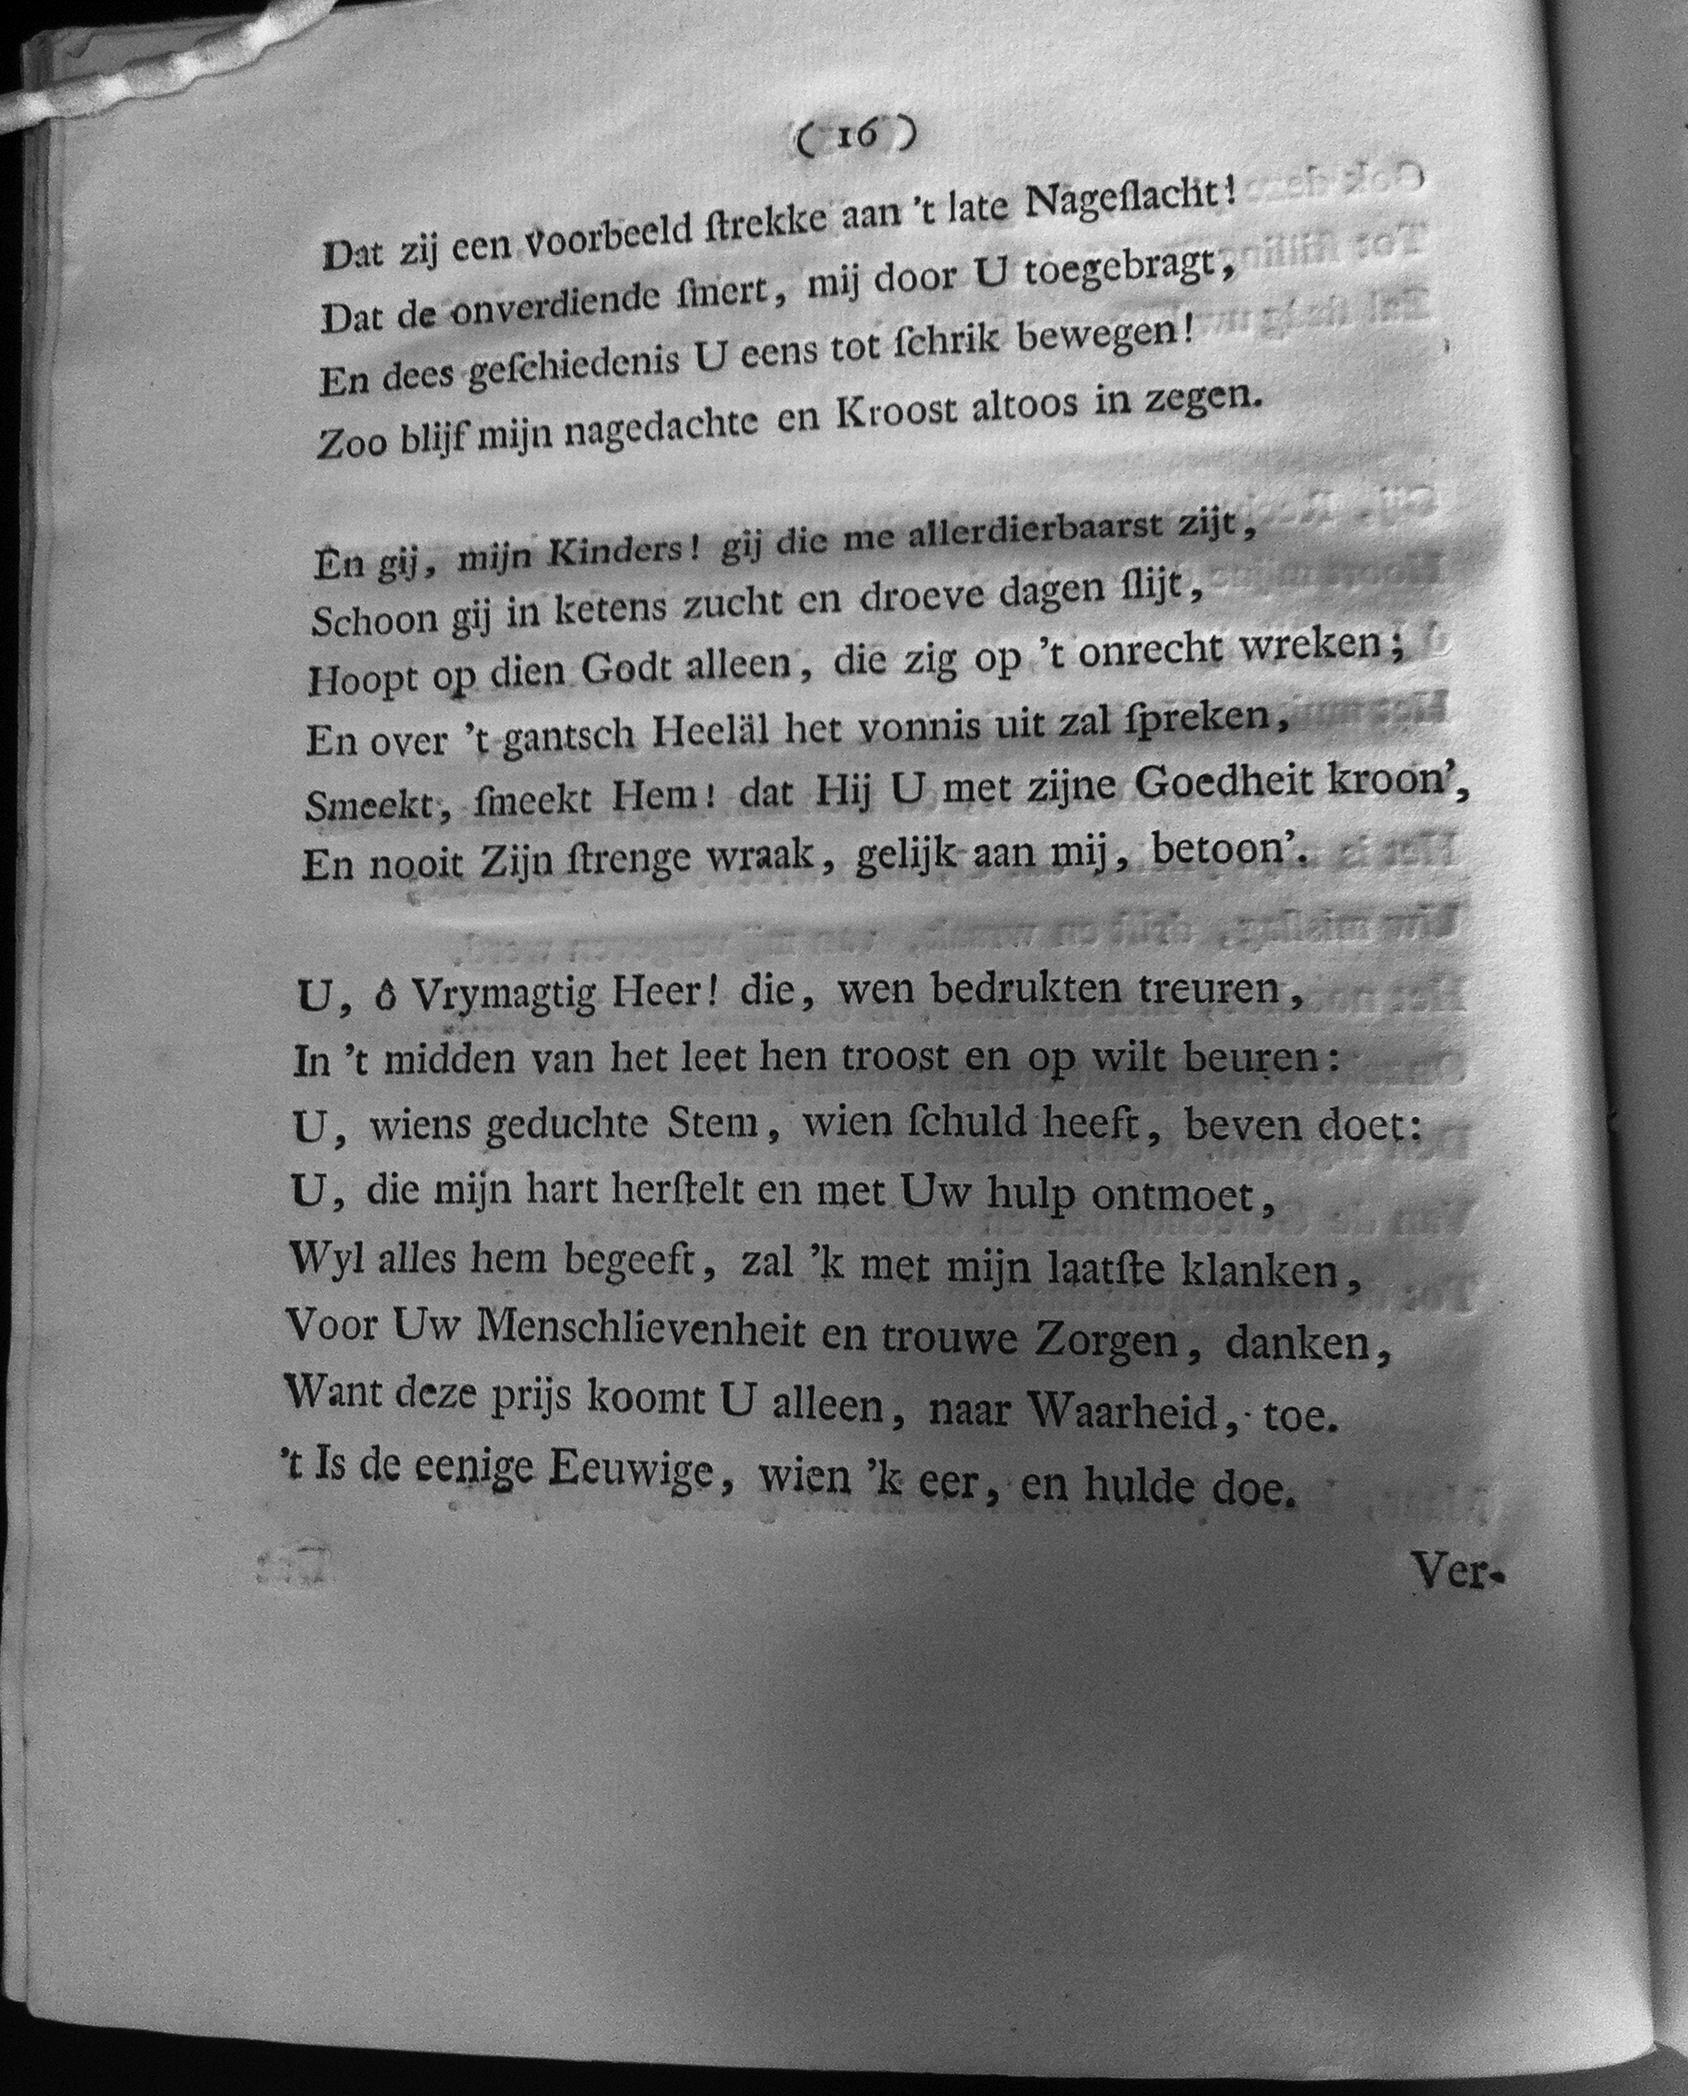 ( 16 )
Dat zij een voorbeeld ſtrekke aan 't late Nageſlacht!
Dat de onverdiende ſmert, mij door U toegebragt,
En dees geſchiedenis U eens tot ſchrik bewegen!
Zoo blijf mijn nagedachte en Kroost altoos in zegen.
En gij, mijn Kinders! gij die me allerdierbaarst zijt,
Schoon gij in ketens zucht en droeve dagen ſlijt,
Hoopt op dien Godt alleen, die zig op 't onrecht wreken;
En over 't gantsch Heeläl het vonnis uit zal ſpreken,
Smeekt, ſmeekt Hem! dat Hij U met zijne Goedheit kroon',
En nooit Zijn ſtrenge wraak, gelijk aan mij, betoon'.
U, ô Vrymagtig Heer! die, wen bedrukten treuren,
In 't midden van het leet hen troost en op wilt beuren:
U, wiens geduchte Stem, wien ſchuld heeft, beven doet:
U, die mijn hart herſtelt en met Uw hulp ontmoet,
Wyl alles hem begeeft, zal 'k met mijn laatſte klanken,
Voor Uw Menschlievenheit en trouwe Zorgen, danken,
Want deze prijs koomt U alleen, naar Waarheid, toe.
't Is de eenige Eeuwige, wien 'k eer, en hulde doe.
Ver-